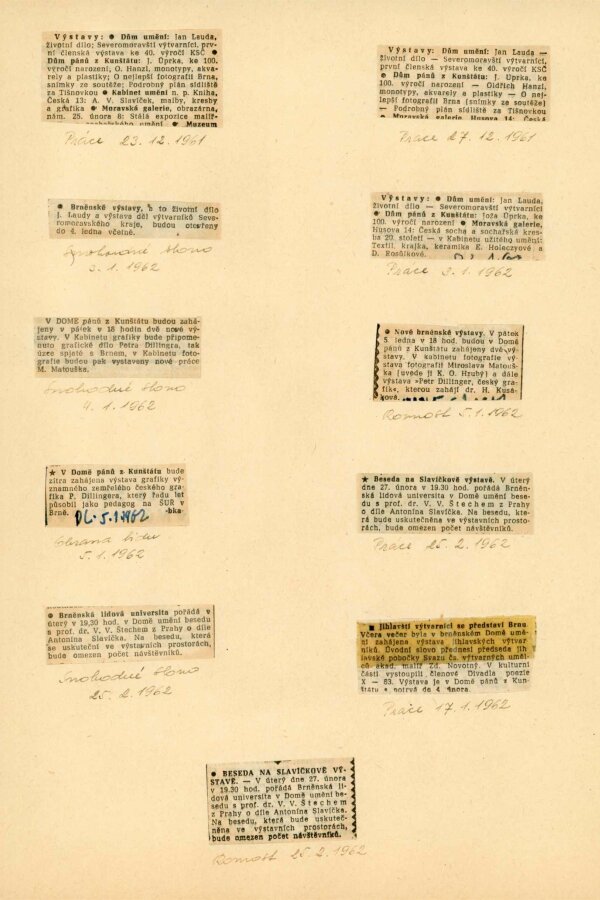 Výstavy: ● Dům umění: Jan Lauda,
životní dílo; Severomoravští výtvarníci, prv-
ní členská výstava ke 40. výročí KSČ
● Dům pánů z Kunštátu: J. Úprka, ke 100.
výročí narození; O. Hanzl, monotypy, akva-
rely a plastiky; O nejlepší fotografii Brna,
snímky ze soutěže; Podrobný plán sídliště
za Tišnovkou ● Kabinet umění n. p. Kniha,
Česká 13: A. V. Slavíček, malby, kresby
a grafika ● Moravská galerie, obrazárna,
nám. 25. února 8: Stálá expozice malíř-
umění ● Muzeum
Práce 23. 12. 1961
Výstavy: ● Dům umění: Jan Lauda —
životní dílo — Severomoravští výtvarníci,
první členská výstava ke 40. výročí KSČ
● Dům pánů z Kunštátu: J. Úprka, ke
100. výročí narození — Oldřich Hanzl,
monotypy, akvarely a plastiky — O nej-
lepší fotografii Brna (snímky ze soutěže)
— Podrobný plán sídliště za Tišnovkou
● Moravská galerie, Husova 14: Česká
Práce 27. 12. 1961
● Brněnské výstavy, a to životní dílo
J. Laudy a výstava děl výtvarníků Seve-
romoravského kraje, budou otevřeny
do 4. ledna včetně.
Svobodné slovo
3. 1. 1962
Výstavy: ● Dům umění: Jan Lauda,
životní dílo — Severomoravští výtvarníci
● Dům pánů z Kunštátu: Joža Úprka, ke
100. výročí narození ● Moravská galerie,
Husova 14: Česká socha a sochařská kres-
ba 20. století — v Kabinetu užitého umění:
Textil, krajka, keramika E. Holéczyové a
D. Rosůlkové.
Práce 3. 1. 1962
V DOMĚ pánů z Kunštátu budou zahá-
jeny v pátek v 18 hodin dvě nové vý-
stavy. V Kabinetu grafiky bude připome-
nuto grafické dílo Petra Dillingra, tak
úzce spjaté s Brnem, v Kabinetu foto-
grafie budou pak vystaveny nové práce
M. Matouška.
Svobodné slovo
4. 1. 1962
● Nové brněnské výstavy. V pátek
5. ledna v 18 hod. budou v Domě
pánů z Kunštátu zahájeny dvě vý-
stavy. V kabinetu fotografie vý-
stava fotografií Miroslava Matouš-
ka (uvede ji K. O. Hrubý) a dále
výstava »Petr Dillinger, český gra-
fik«, kterou zahájí dr. H. Kusá-
ková.
Rovnost 5. 1. 1962
★ V Domě pánů z Kunštátu bude
zítra zahájena výstava grafiky vý-
znamného zemřelého českého gra-
fika P. Dillingera, který řadu let
působil jako pedagog na ŠUŘ v
Brně. -bka
5. 1. 1962
Obrana lidu
5. 1. 1962
★ Beseda na Slavíčkově výstavě. V úterý
dne 27. února v 19.30 hod. pořádá Brněn-
ská lidová univerzita v Domě umění bese-
du s prof. dr. V. V. Štechem z Prahy
o díle Antonína Slavíčka. Na besedu, kte-
rá bude uskutečněna ve výstavních prosto-
rách, bude omezen počet návštěvníků.
Práce 25. 2. 1962
● Brněnská lidová universita pořádá v
úterý v 19,30 hod. v Domě umění besedu
s prof. dr. V. V. Štechem z Prahy o díle
Antonína Slavíčka. Na besedu, která
se uskuteční ve výstavních prostorách,
bude omezen počet návštěvníků.
Svobodné slovo
25. 2. 1962
■ Jihlavští výtvarníci se představí Brnu.
Včera večer byla v brněnském Domě umě-
ní zahájena výstava jihlavských výtvar-
níků. Úvodní slovo přednesl předseda jih-
lavské pobočky Svazu čs. výtvarných uměl-
ců akad. malíř Zd. Novotný. V kulturní
části vystoupili členové Divadla poezie
X — 63. Výstava je v Domě pánů z Kun-
štátu a potrvá do 4. února.
Práce 17. 1. 1962
● BESEDA NA SLAVÍČKOVĚ VÝ-
STAVĚ. — V úterý dne 27. února
v 19.30 hod. pořádá Brněnská li-
dová universita v Domě umění be-
sedu s prof. V. V. Štechem
z Prahy o díle Antonína Slavíčka.
Na besedu, která bude uskuteč-
něna ve výstavních prostorách,
bude omezen počet návštěvníků.
Rovnost 25. 2. 1962